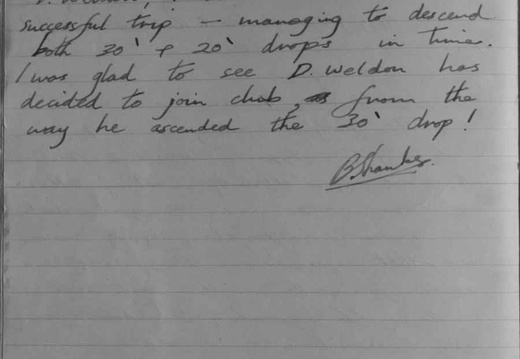 D. Weldon,
successful trip – managing to descend
both 30' & 20' drops in time.
I was glad to see D. Weldon has
decided to join club, from the
way he ascended the 30' drop!
B. Shambes.